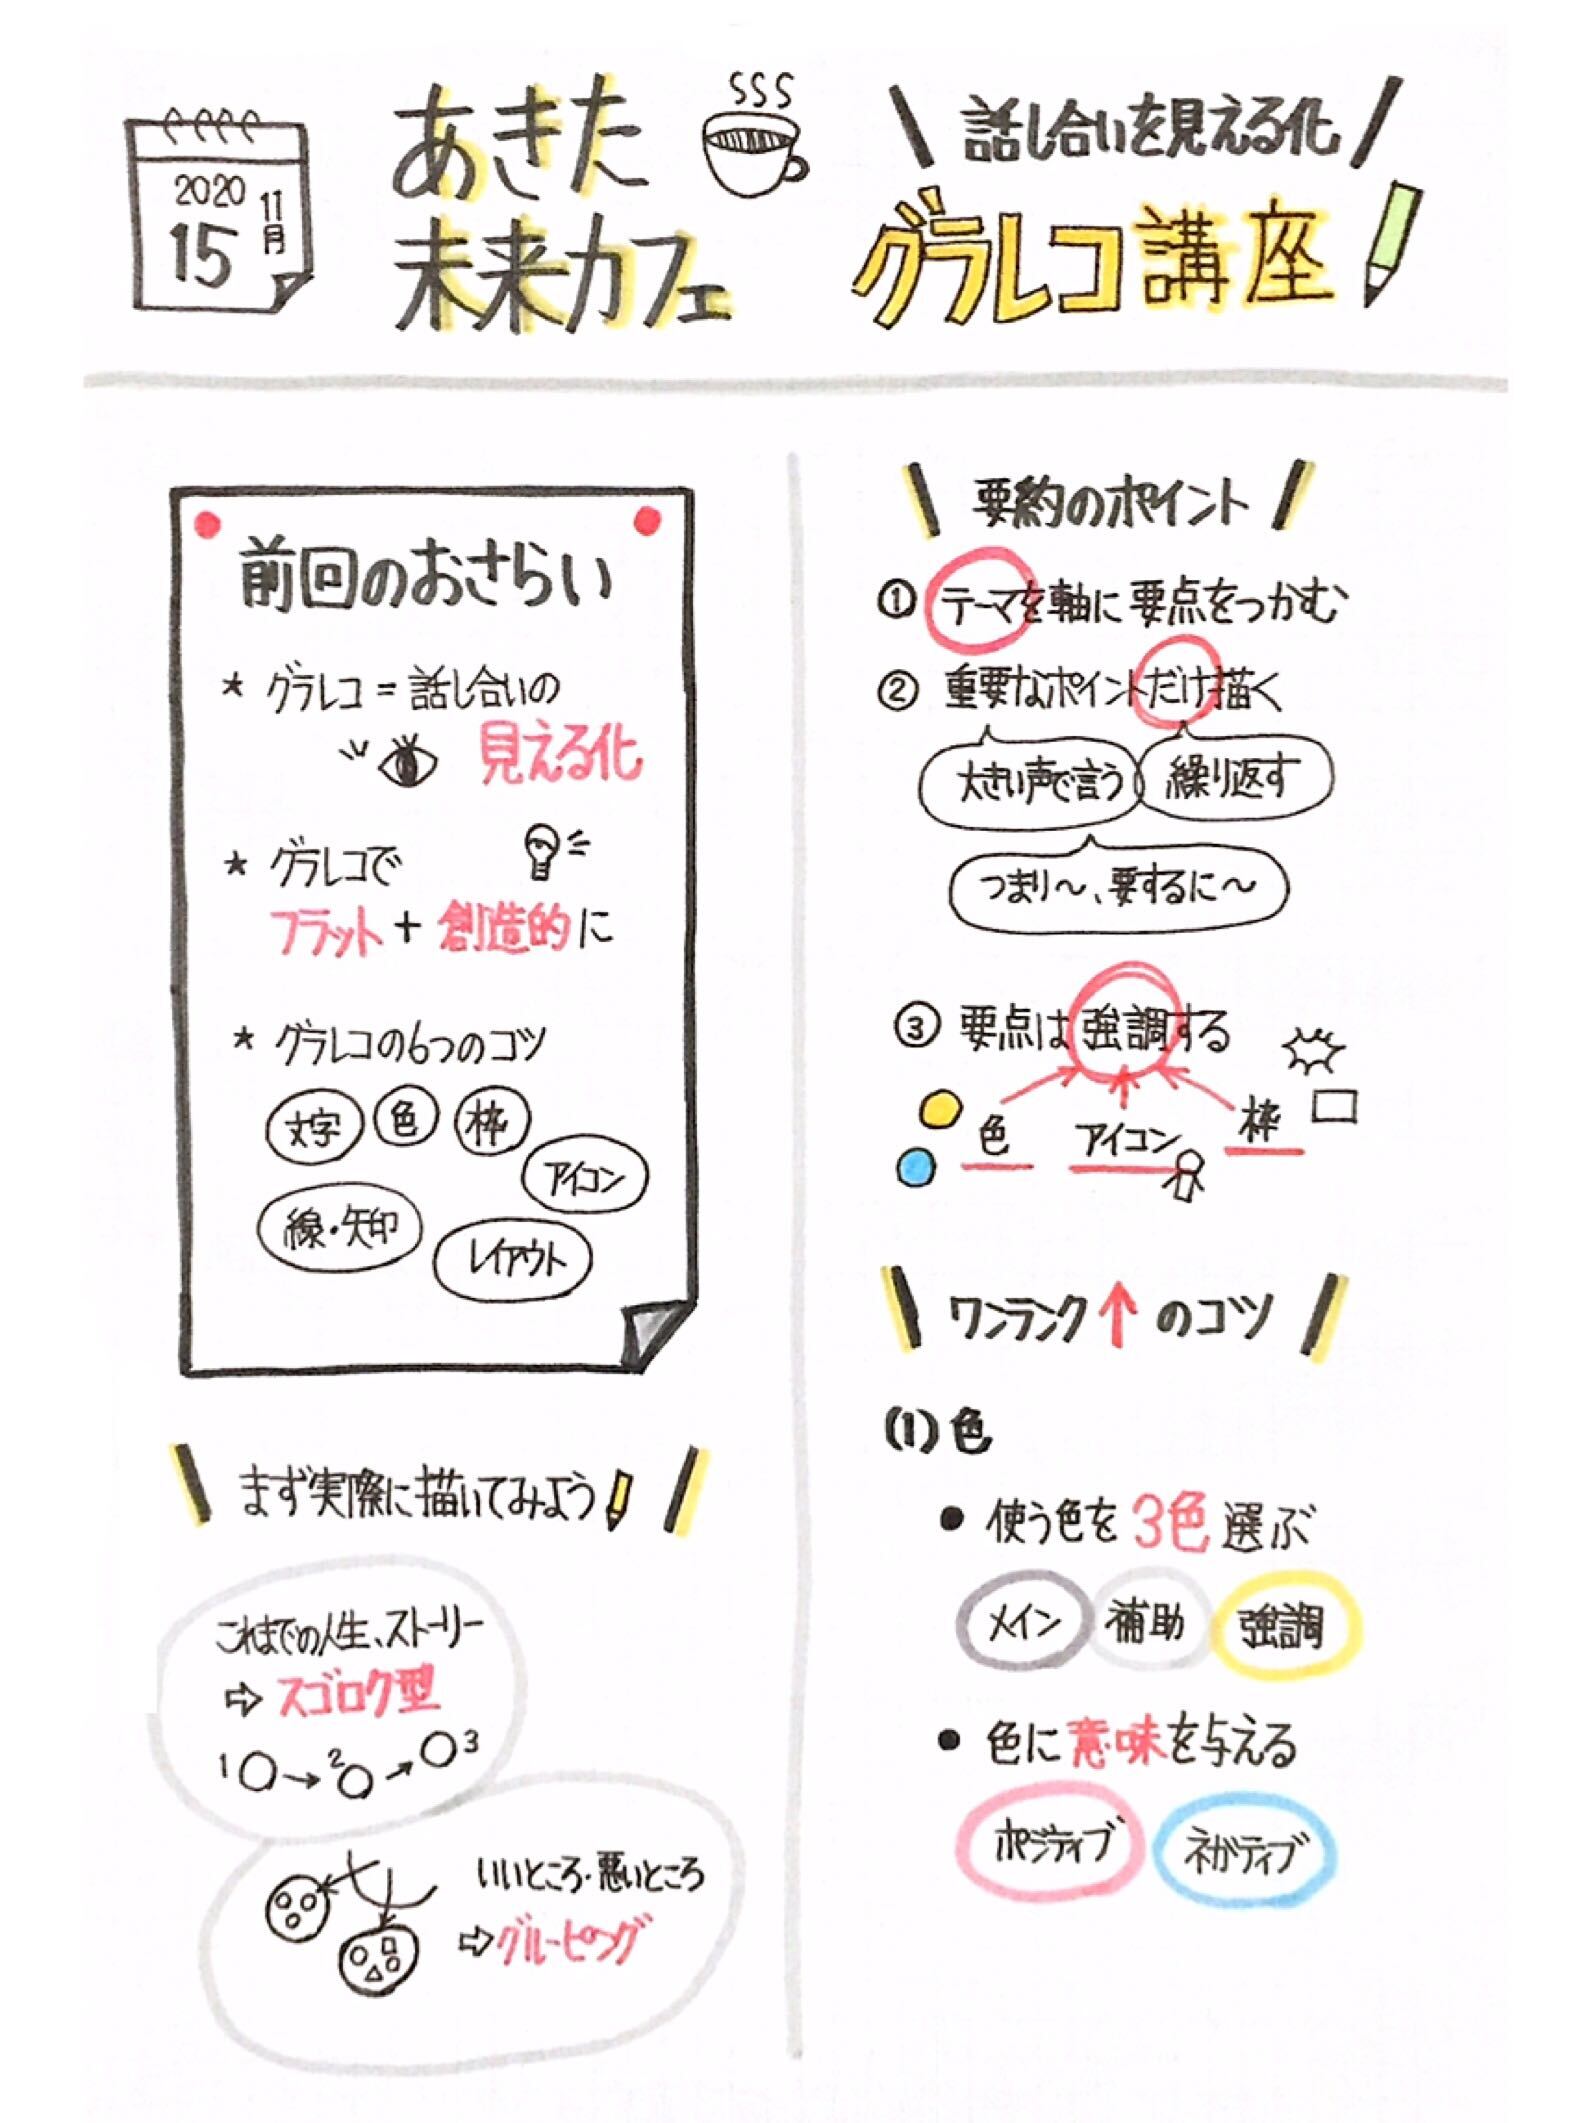 2020
11月
15
あきた
未来カフェ
話し合いを見える化
グラレコ講座
前回のおさらい
★ グラレコ = 話し合いの
見える化
★ グラレコで
フラット + 創造的に
★ グラレコの6つのコツ
文字 色 枠
アイコン
線・矢印
レイアウト
まず実際に描いてみよう
これまでの人生、ストーリー
⇨ スゴロク型
1○→2○→○3
いいところ・悪いところ
⇨グルーピング
要約のポイント
① テーマを軸に要点をつかむ
② 重要なポイントだけ描く
大きい声で言う 繰り返す
つまり〜、要するに〜
③ 要点は強調する
色 アイコン 枠
ワンランク↑のコツ
(1) 色
● 使う色を3色選ぶ
メイン 補助 強調
● 色に意味を与える
ポジティブ ネガティブ